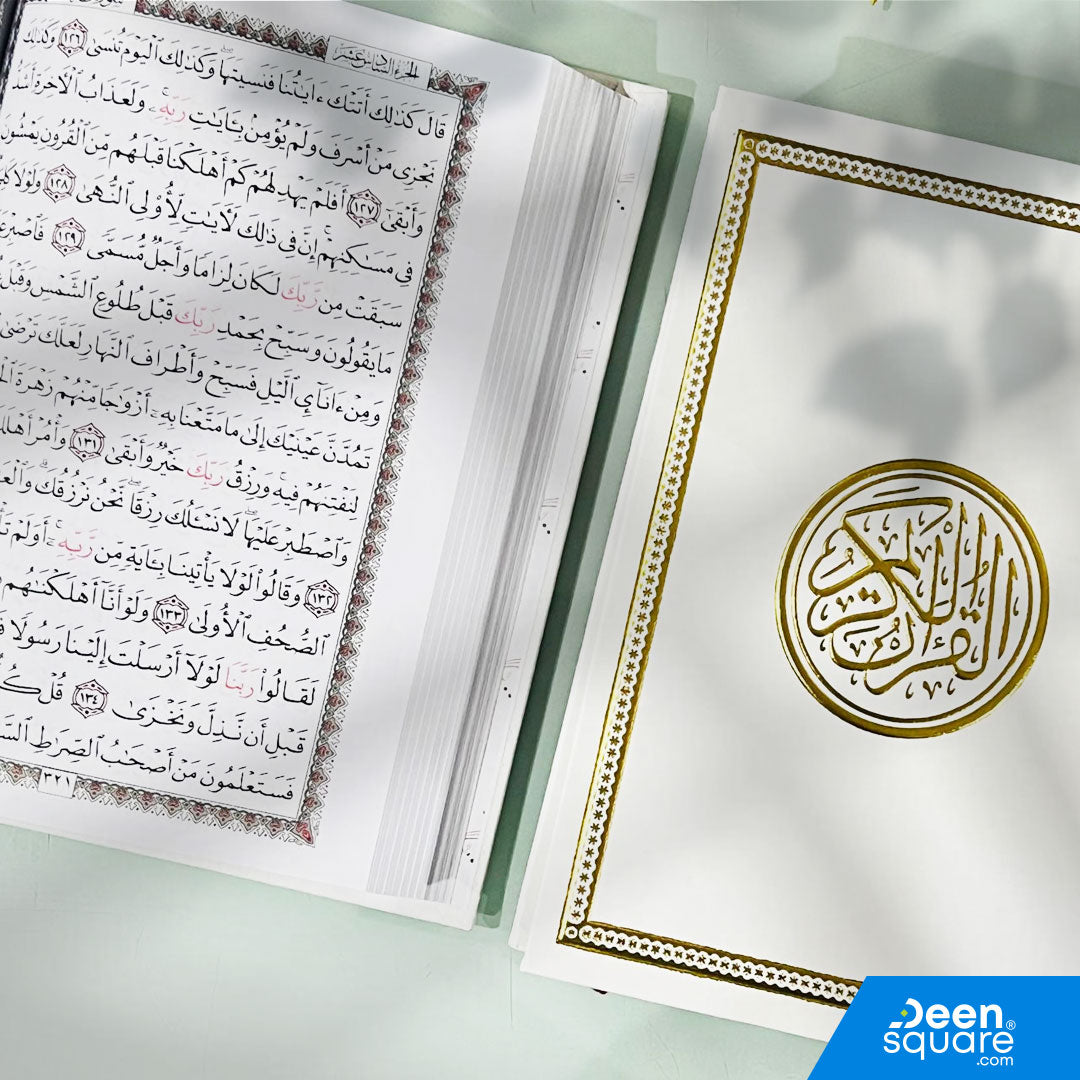 الجزء السادس عشر
قَالَ كَذَٰلِكَ أَتَتْكَ ءَايَٰتُنَا فَنَسِيتَهَا ۖ وَكَذَٰلِكَ ٱلْيَوْمَ تُنسَىٰ ١٢٦ وَكَذَٰلِكَ
نَجْزِى مَنْ أَسْرَفَ وَلَمْ يُؤْمِنۢ بِـَٔايَٰتِ رَبِّهِۦ ۚ وَلَعَذَابُ ٱلْـَٔاخِرَةِ أَشَدُّ
وَأَبْقَىٰٓ ١٢٧ أَفَلَمْ يَهْدِ لَهُمْ كَمْ أَهْلَكْنَا قَبْلَهُم مِّنَ ٱلْقُرُونِ يَمْشُونَ
فِى مَسَٰكِنِهِمْ ۗ إِنَّ فِى ذَٰلِكَ لَـَٔايَٰتٍ لِّأُو۟لِى ٱلنُّهَىٰ ١٢٨ وَلَوْلَا
سَبَقَتْ مِن رَّبِّكَ لَكَانَ لِزَامًا وَأَجَلٌ مُّسَمًّى ١٢٩ فَٱصْبِرْ
مَا يَقُولُونَ وَسَبِّحْ بِحَمْدِ رَبِّكَ قَبْلَ طُلُوعِ ٱلشَّمْسِ وَقَبْلَ
وَمِنْ ءَانَآئِ ٱلَّيْلِ فَسَبِّحْ وَأَطْرَافَ ٱلنَّهَارِ لَعَلَّكَ تَرْضَىٰ
تَمُدَّنَّ عَيْنَيْكَ إِلَىٰ مَا مَتَّعْنَا بِهِۦٓ أَزْوَٰجًا مِّنْهُمْ زَهْرَةَ
لِنَفْتِنَهُمْ فِيهِ ۚ وَرِزْقُ رَبِّكَ خَيْرٌ وَأَبْقَىٰ ١٣١ وَأْمُرْ أَهْلَكَ
وَٱصْطَبِرْ عَلَيْهَا ۖ لَا نَسْـَٔلُكَ رِزْقًا ۖ نَّحْنُ نَرْزُقُكَ ۗ
١٣٢ وَقَالُوا۟ لَوْلَا يَأْتِينَا بِـَٔايَةٍ مِّن رَّبِّهِۦٓ ۚ أَوَلَمْ
ٱلصُّحُفِ ٱلْأُولَىٰ ١٣٣ وَلَوْ أَنَّآ أَهْلَكْنَٰهُم
لَقَالُوا۟ رَبَّنَا لَوْلَآ أَرْسَلْتَ إِلَيْنَا رَسُولًا
قَبْلِ أَن نَّذِلَّ وَنَخْزَىٰ ١٣٤ قُلْ
فَسَتَعْلَمُونَ مَنْ أَصْحَٰبُ ٱلصِّرَٰطِ
٣٢١
القرآن الكريم
Deen
square®
.com